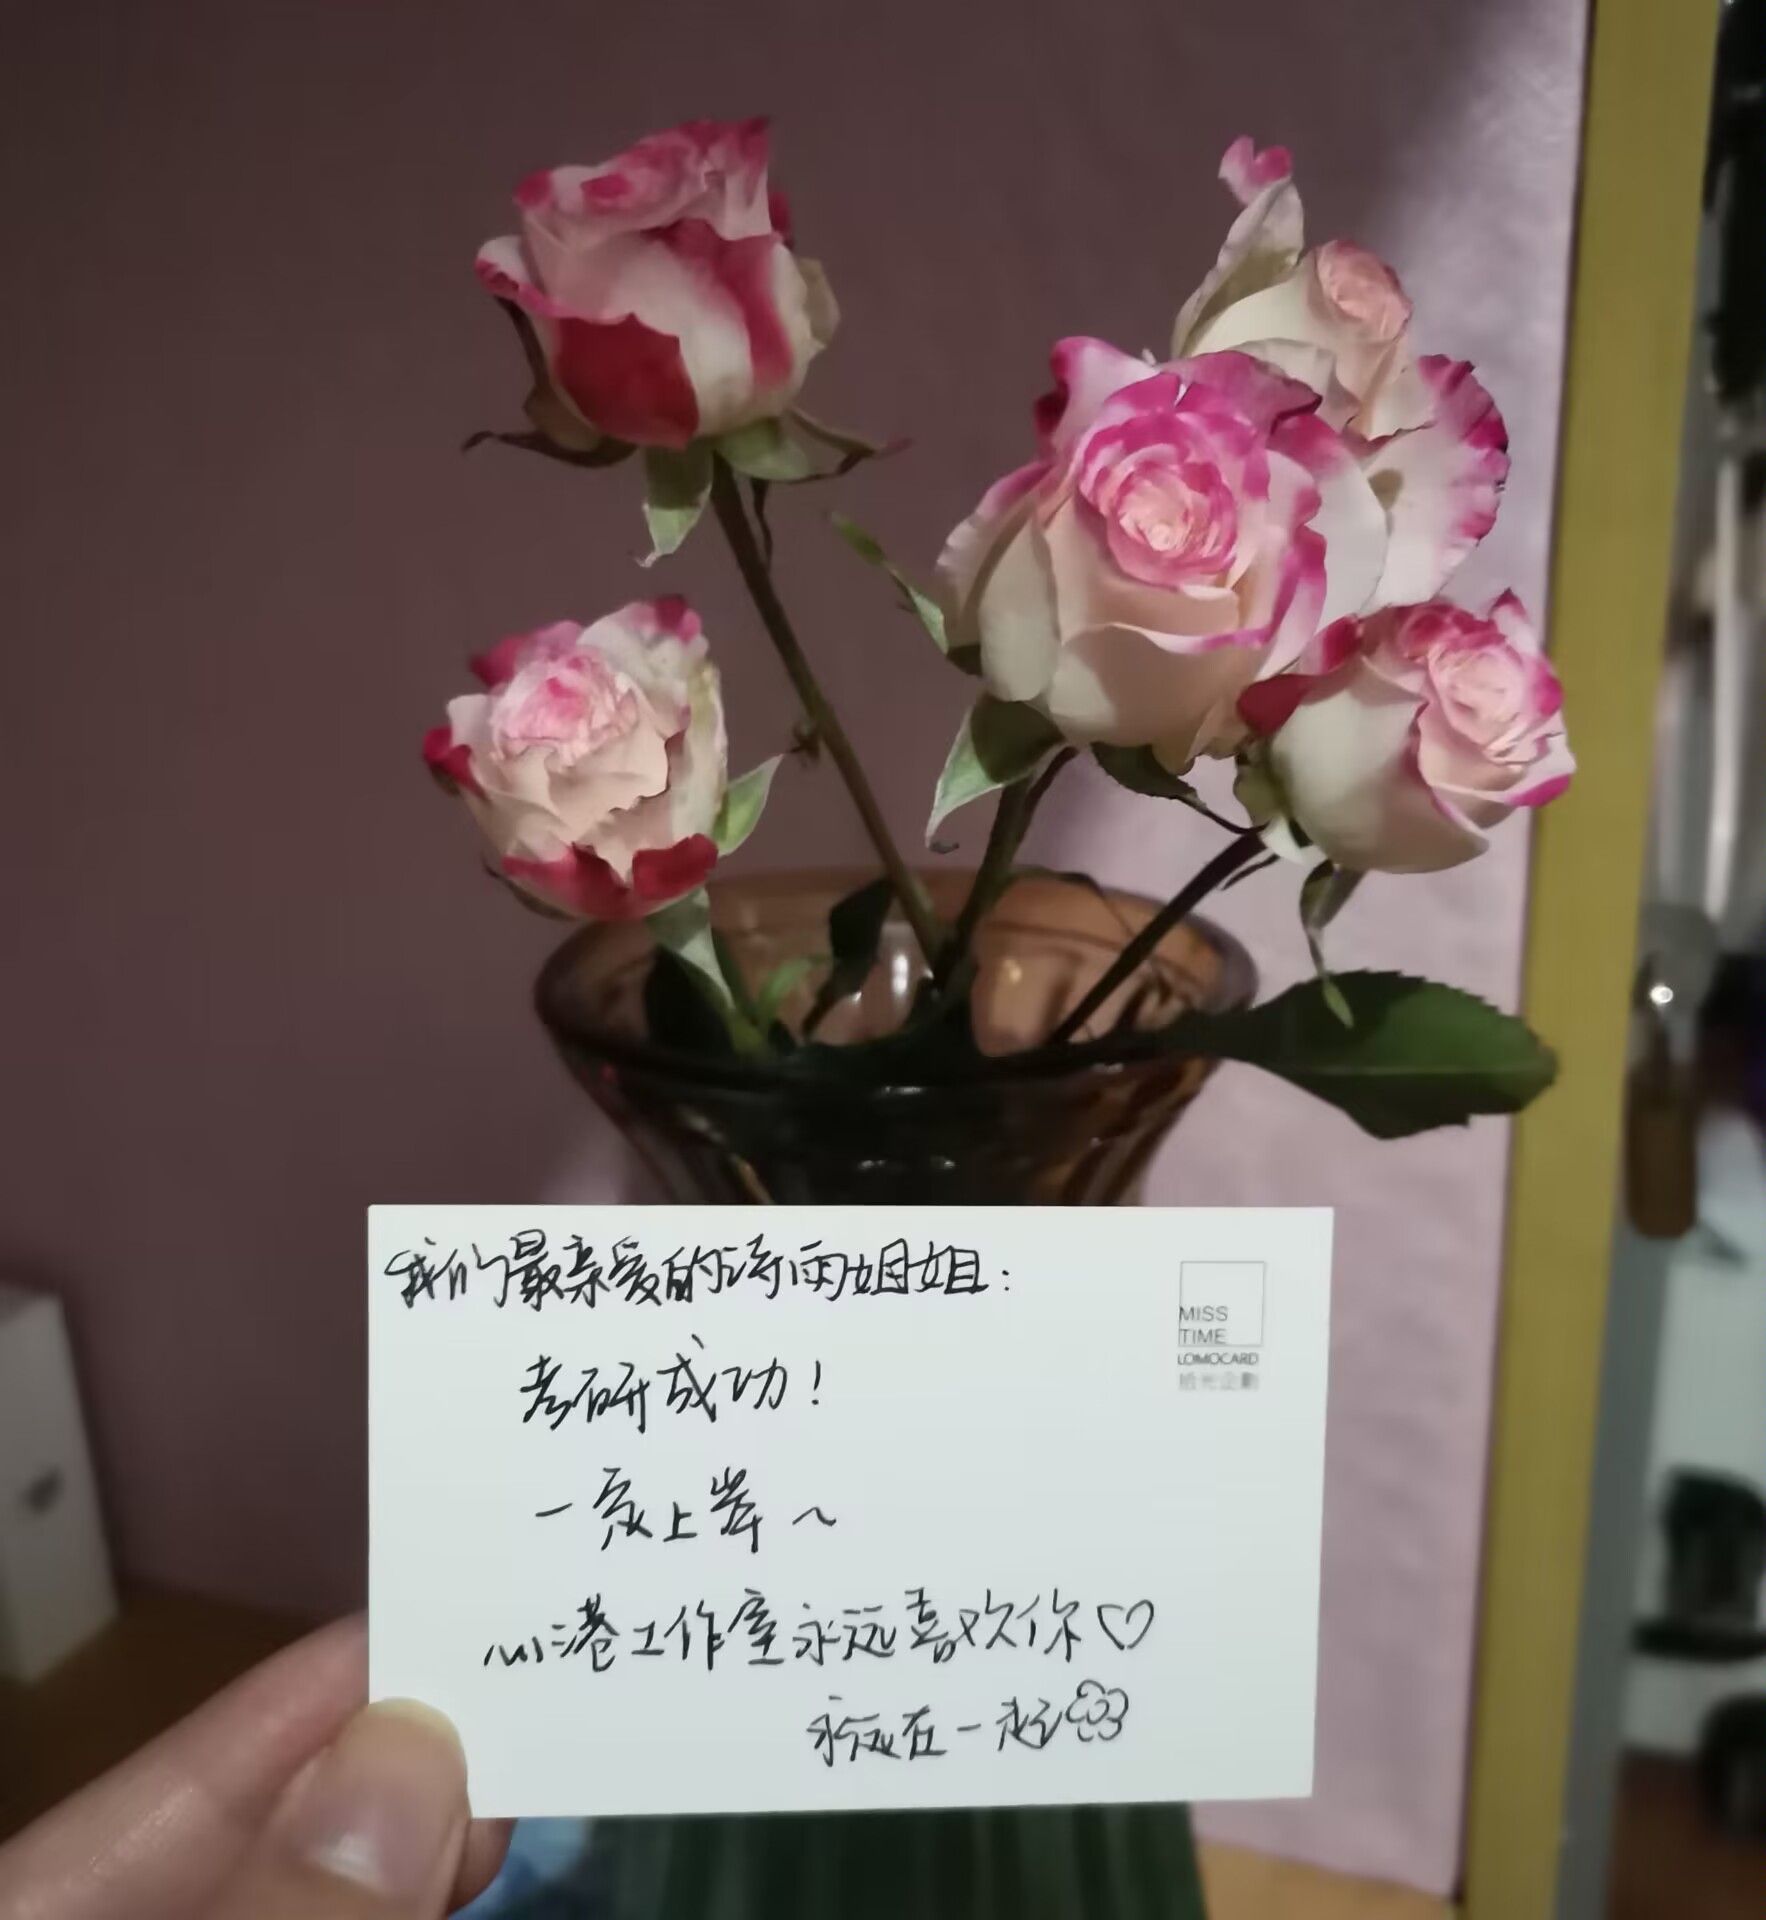 我们最亲爱的诗雨姐姐：
MISS
TIME
LOMOCARD
拾光企劃
考研成功！
一定上岸～
心港工作室永远喜欢你♡
永远在一起